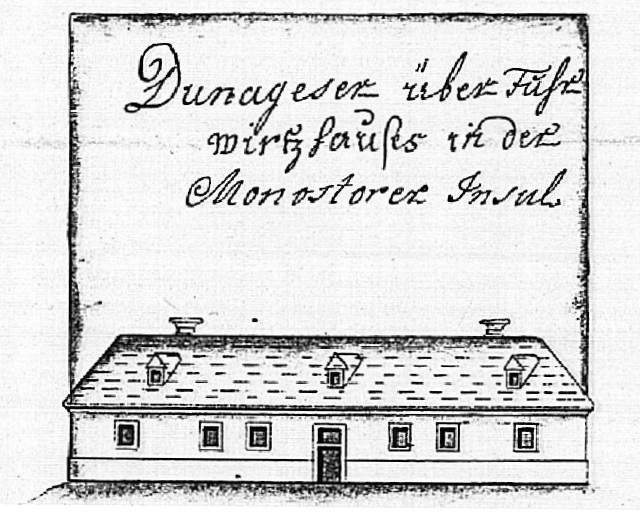 Dunageser über Fuhr
wirtzhaußs in der
Monostorer Insul.